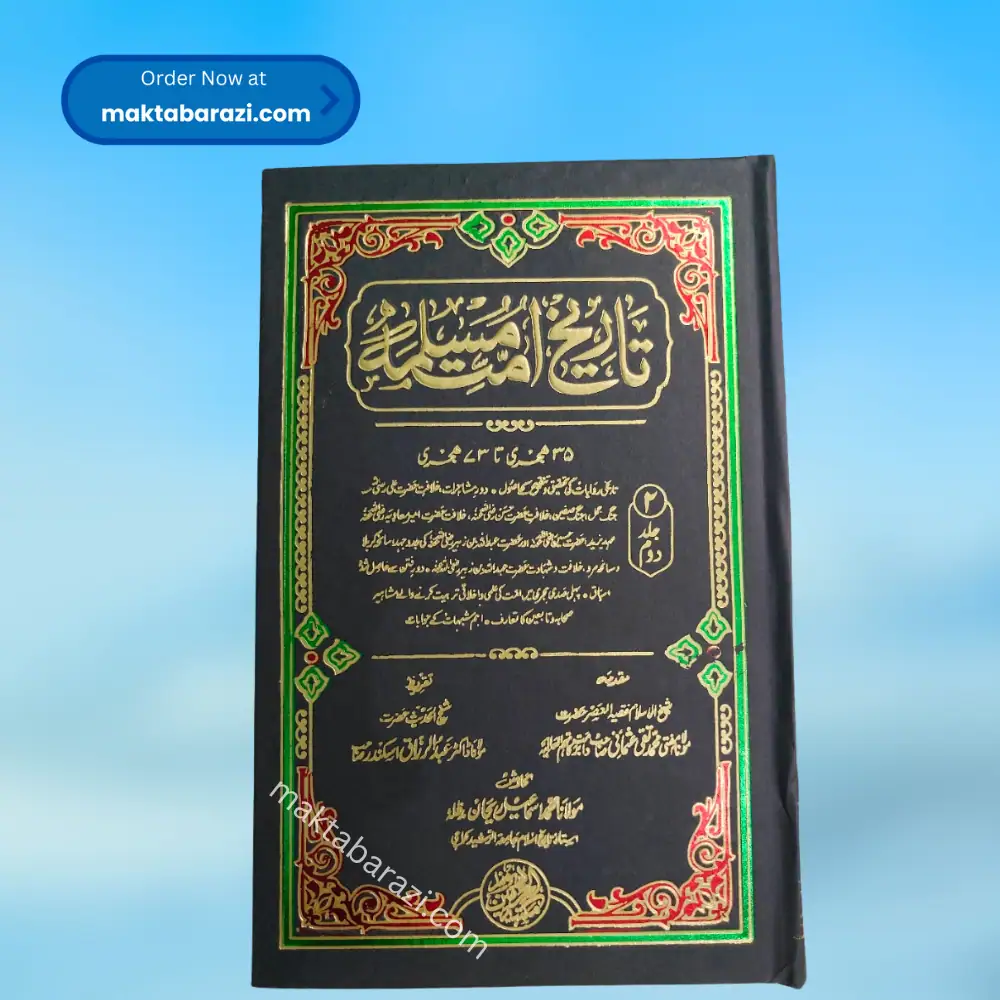 Order Now at
maktabarazi.com
تاریخ امت مسلمہ
۳۵ ہجری تا ۷۳ ہجری
تاریخی روایات کی تحقیق و تنقیح کے اصول ۔ دورِ مشاجرات، خلافت حضرت علی رضی
جنگِ جمل، جنگِ صفین، خلافتِ حضرت حسن رضی اللہ عنہ، خلافت حضرت امیر معاویہ رضی اللہ عنہ
عہدِ یزید، حضرت حسین رضی اللہ عنہ اور حضرت عبداللہ بن زبیر رضی اللہ عنہ کی جدوجہد، سانحہ کربلا
و سانحہ حرہ، خلافت و شہادت حضرت عبداللہ بن زبیر رضی اللہ عنہ ۔ دورِ فتن سے حاصل شدہ
اسباق ۔ پہلی صدی ہجری میں امت کی علمی و اخلاقی تربیت کرنے والے مشاہیر
صحابہ و تابعین کا تعارف ۔ اہم شبہات کے جوابات
۲
جلد
دوم
مقدمہ
شیخ الاسلام فقیہ العصر حضرت
مولانا مفتی محمد تقی عثمانی صاحب دامت برکاتہم العالیہ
تقریظ
شیخ الحدیث حضرت
مولانا ڈاکٹر عبدالرزاق اسکندر
کاوش
مولانا محمد اسماعیل ریحان
استاذ تاریخ اسلام جامعۃ الرشید کراچی
maktabarazi.com